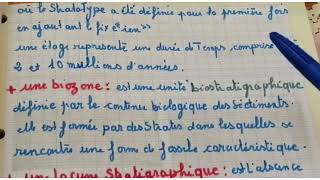 où le Stratotype a été définie pour la première fois
en ajoutant le fix « ien »
une étage represente une durée de Temps comprise
2 et 10 millions d'années.
+ une biozone : est une unité biostratigraphique
définie par le contenu biologique des sédiments.
elle est formée par des Strates dans lesquelles se
rencontre une form de fossile caractéristique.
+ une lacune Statigraphique : est l'absence